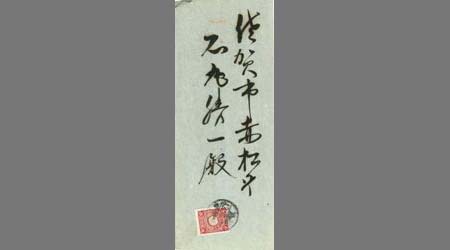 佐賀市赤松丁
石丸勝一殿